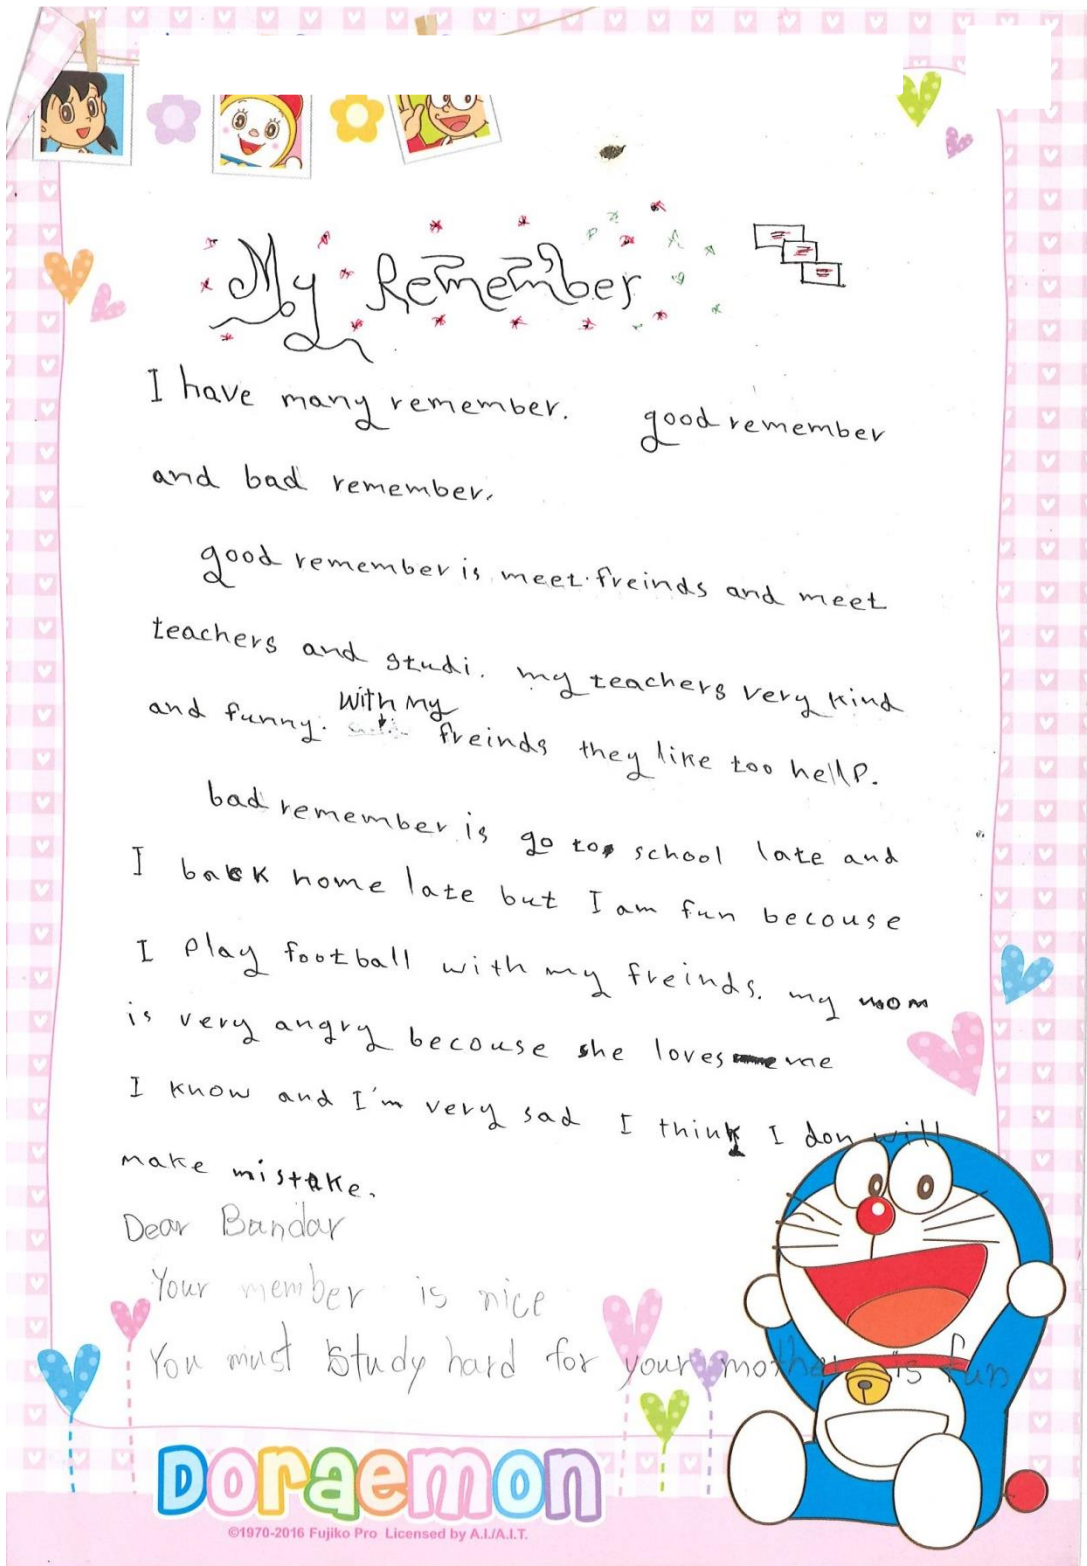 My Remember
I have many remember. good remember
and bad remember.
good remember is meet freinds and meet
teachers and studi. my teachers very kind
and funny. with my freinds they like too hellp.
bad remember is go to school late and
I back home late but I am fun becouse
I play football with my freinds. my mom
is very angry becouse she loves me
I know and I'm very sad I think I don will
make mistake.
Dear Bandar
Your member is nice
You must study hard for your mother is fun
DORAEMON
©1970-2016 Fujiko Pro Licensed by A.I./A.I.T.